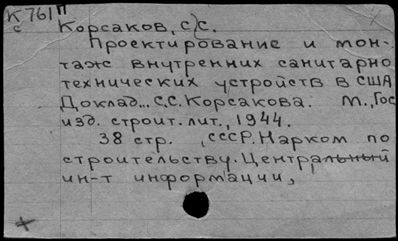 К 761 П
с Корсаков, С.С.
Проектирование и мон-
таж внутренних санитарно
технических устройств в США
Доклад... С.С. Корсакова. М., Гос
изд. строит. лит., 1944.
38 стр. , СССР. Нарком по
строительству. Центральный
ин-т информации,